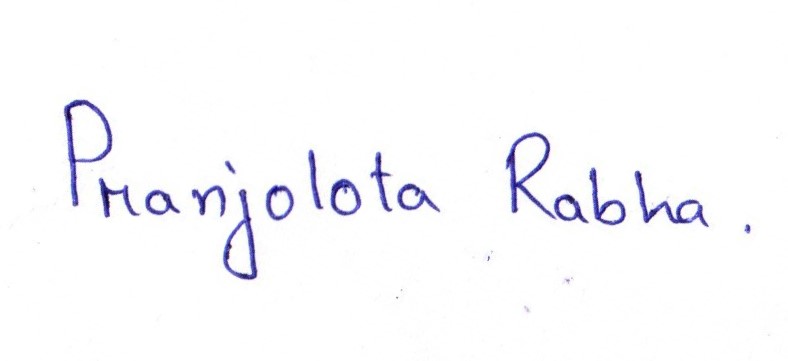 Pranjolota Rabha.